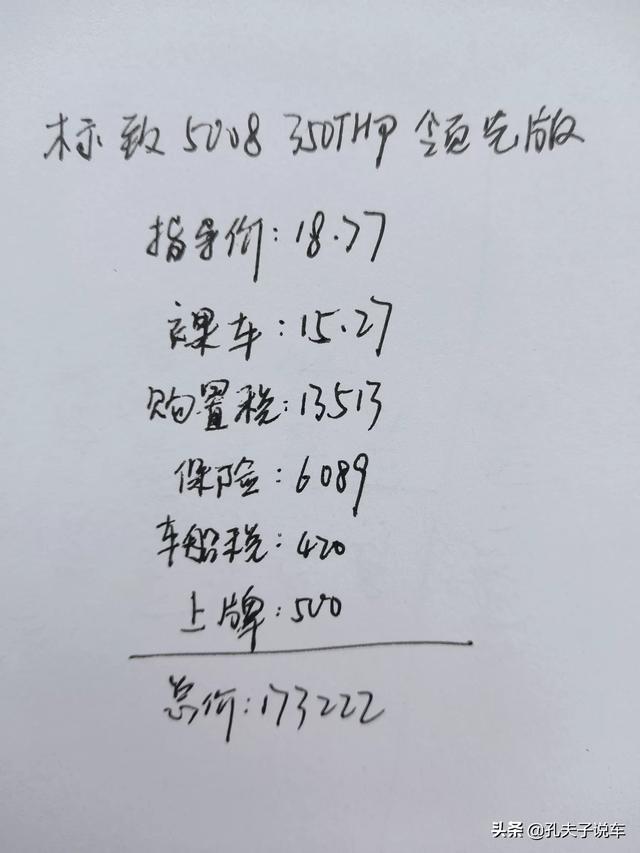 标致 5008 350THP 领先版
指导价:18.77
裸车:15.27
购置税:13513
保险:6089
车船税:420
上牌:500
总价:173222
头条 @孔夫子说车